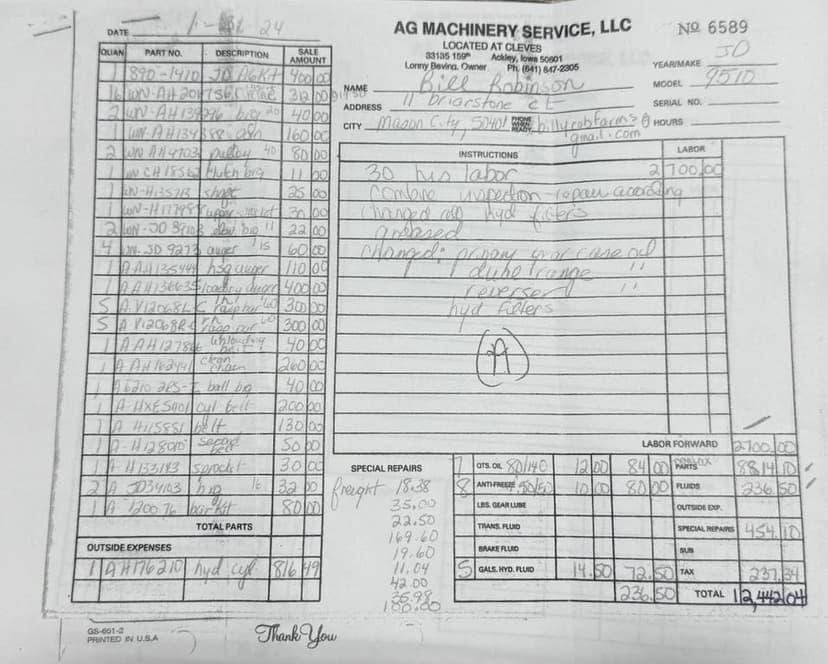 DATE 1- 24
AG MACHINERY SERVICE, LLC
LOCATED AT CLEVES
33135 159th Ackley, Iowa 50601
Lonny Bevins, Owner Ph. (641) 847-2305
No 6589
YEAR/MAKE JD
MODEL 9510
SERIAL NO.
HOURS
NAME Bill Robinson
ADDRESS 11 briarstone ct
CITY Mason City, 50401 PHONE WHEN READY billyrobfarms@gmail.com
QUAN PART NO. DESCRIPTION SALE AMOUNT
1 890-1410 JD 400 00
16 312 00
2 WN-AH brg 20 40 00
1 WN-AH134388 160 00
2 WN AH pulley 40 80 00
1 WN CH clutch brg 11 00
1 WN-H shaft 25 00
1 WN-H upper 30 00
2 WN-JD brg 11 22 00
4 WN-JD 9273 auger 15 60 00
1 A-AH hsg auger 110 00
1 A AH loading auger 400 00
5 A V12068L-C rasp bar 60 300 00
5 A V12068R-C rh rasp bar 60 300 00
1 A AH unloading 40 00
1 A AH clean chain 260 00
1 A 6210 2RS-I ball brg 40 00
1 A-HXE cyl belt 200 00
1 A H115881 belt 130 00
1 A-H128010 belt 50 00
1 A H133193 sprocket 30 00
2 A JD34103 brg 16 32 00
1 A 80 00
TOTAL PARTS
OUTSIDE EXPENSES
1 AH176210 hyd cyl 816 49
INSTRUCTIONS LABOR
30 hrs labor 2 700.00
Combine inspection - repair according
Changed hyd filters
greased
Changed: primary gear case oil
range "
reverser "
hyd filters
(A)
LABOR FORWARD 2700.00
SPECIAL REPAIRS
freight 18.38
35.00
22.50
169.60
19.60
11.04
42.00
35.98
100.00
7 QTS. OIL 80/140 12.00 84 00 PARTS 8814 10
8 ANTI-FREEZE 50/50 10 00 80 00 FLUIDS 236 50
LBS. GEAR LUBE OUTSIDE EXP.
TRANS. FLUID SPECIAL REPAIRS 454.10
BRAKE FLUID SUB
5 GALS. HYD. FLUID 14.50 72.50 TAX 237.34
236.50 TOTAL 12,442.04
GS-651-2
PRINTED IN U.S.A
Thank You